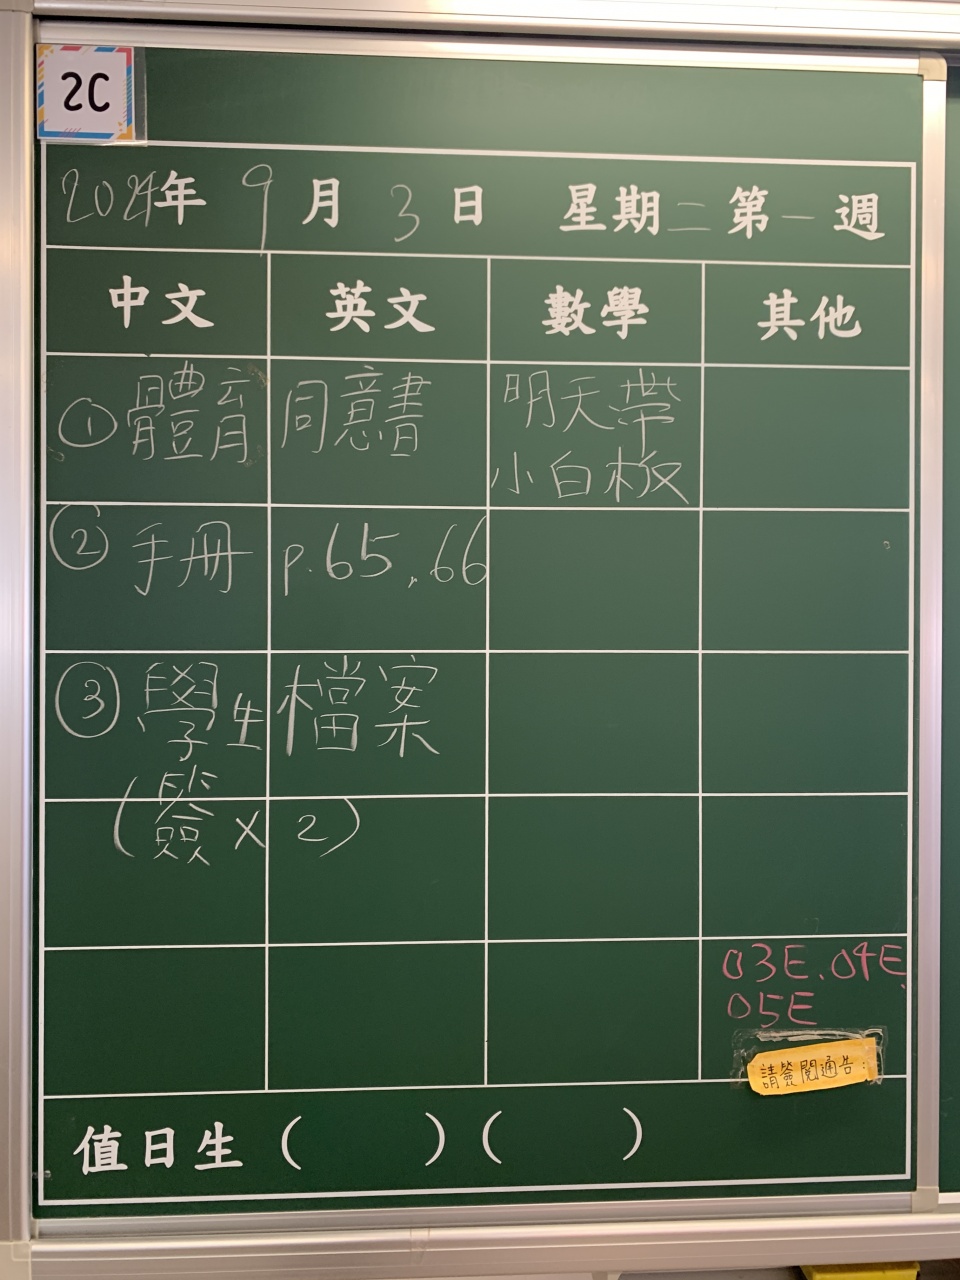 2C
2024年 9月 3日 星期二 第一週
中文 英文 數學 其他
①體育同意書
明天帶
小白板
②手冊 p.65,66
③學生檔案
(簽×2)
03E、04E、
05E
請簽閱通告:
值日生 ( ) ( )